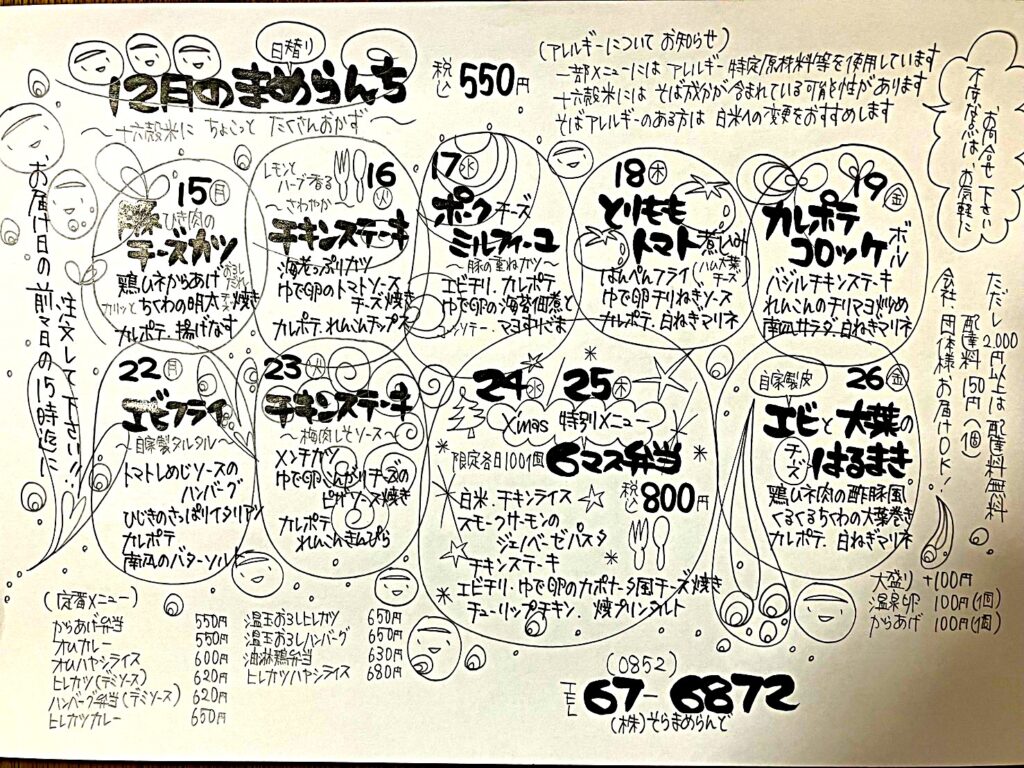 日替り
12月のまめらんち
税込 550円
〜十六穀米に ちょこっと たくさんおかず〜
(アレルギーについて お知らせ)
一部メニューには アレルギー特定原材料等を使用しています
十六穀米には そば成分が含まれている可能性があります
そばアレルギーのある方は 白米への変更をおすすめします
お問合せ下さい
不明な点は、お気軽に
お届け日の前々日の15時迄に
注文して下さい!!
15 月
豚ひき肉の
チーズカツ
鶏ムネからあげ おろしだれ
カリッとちくわの明太チーズ焼き
カルポテ. 揚げなす
レモンと
ハーブ香る
16 火
〜さわやか
チキンステーキ
海老っぷりカツ
ゆで卵のトマトソース
チーズ焼き
カルポテ. れんこんチップス
17 水
ポークチーズ
ミルフィーユ
〜豚の重ねカツ〜
エビチリ. カルポテ
ゆで卵の海苔佃煮と
マヨすりごま
18 木
とりもも
トマト煮込み
はんぺんフライ(ハム大葉チーズ)
ゆで卵チリねぎソース
カルポテ. 白ねぎマリネ
19 金
カルポテ
コロッケボール
バジルチキンステーキ
れんこんのチリマヨ炒め
南瓜サラダ. 白ねぎマリネ
ただし2,000円以上は配達料無料
配達料150円(1個)
会社、団体様お届けOK!
22 月
エビフライ
〜自家製タルタル〜
トマトしめじソースの
ハンバーグ
ひじきのさっぱりイタリアン
カルポテ
南瓜のバターソルト
23 火
チキンステーキ
〜梅肉しそソース〜
メンチカツ
ゆで卵こんがりチーズの
ピザソース焼き
カルポテ
れんこんきんぴら
24 水 25 木
X'mas 特別メニュー
限定各日100個 6マス弁当
税込 800円
白米. チキンライス
スモークサーモンの
ジェノベーゼパスタ
チキンステーキ
エビチリ・ゆで卵のカポナータ風チーズ焼き
チューリップチキン. 焼プリンタルト
自家製皮
26 金
エビと大葉の
チーズはるまき
鶏ムネ肉の酢豚風
くるくるちくわの大葉巻き
カルポテ. 白ねぎマリネ
大盛り +100円
温泉卵 100円(1個)
からあげ 100円(1個)
(定番メニュー)
からあげ弁当 550円
オムカレー 550円
オムハヤシライス 600円
ヒレカツ(デミソース) 620円
ハンバーグ弁当(デミソース) 620円
ヒレカツカレー 650円
温玉おろしヒレカツ 650円
温玉おろしハンバーグ 650円
油淋鶏弁当 630円
ヒレカツハヤシライス 680円
(0852)
TEL 67-6872
(株)そらまめらんど